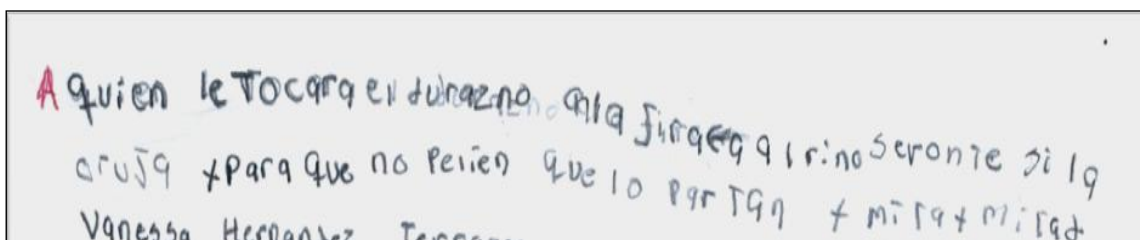 A quien le Tocara el durazno ala jirafa al rinoseronte si la
oruja + para que no pelien que lo parTan + miTa + miTad
Vanessa Hernandez